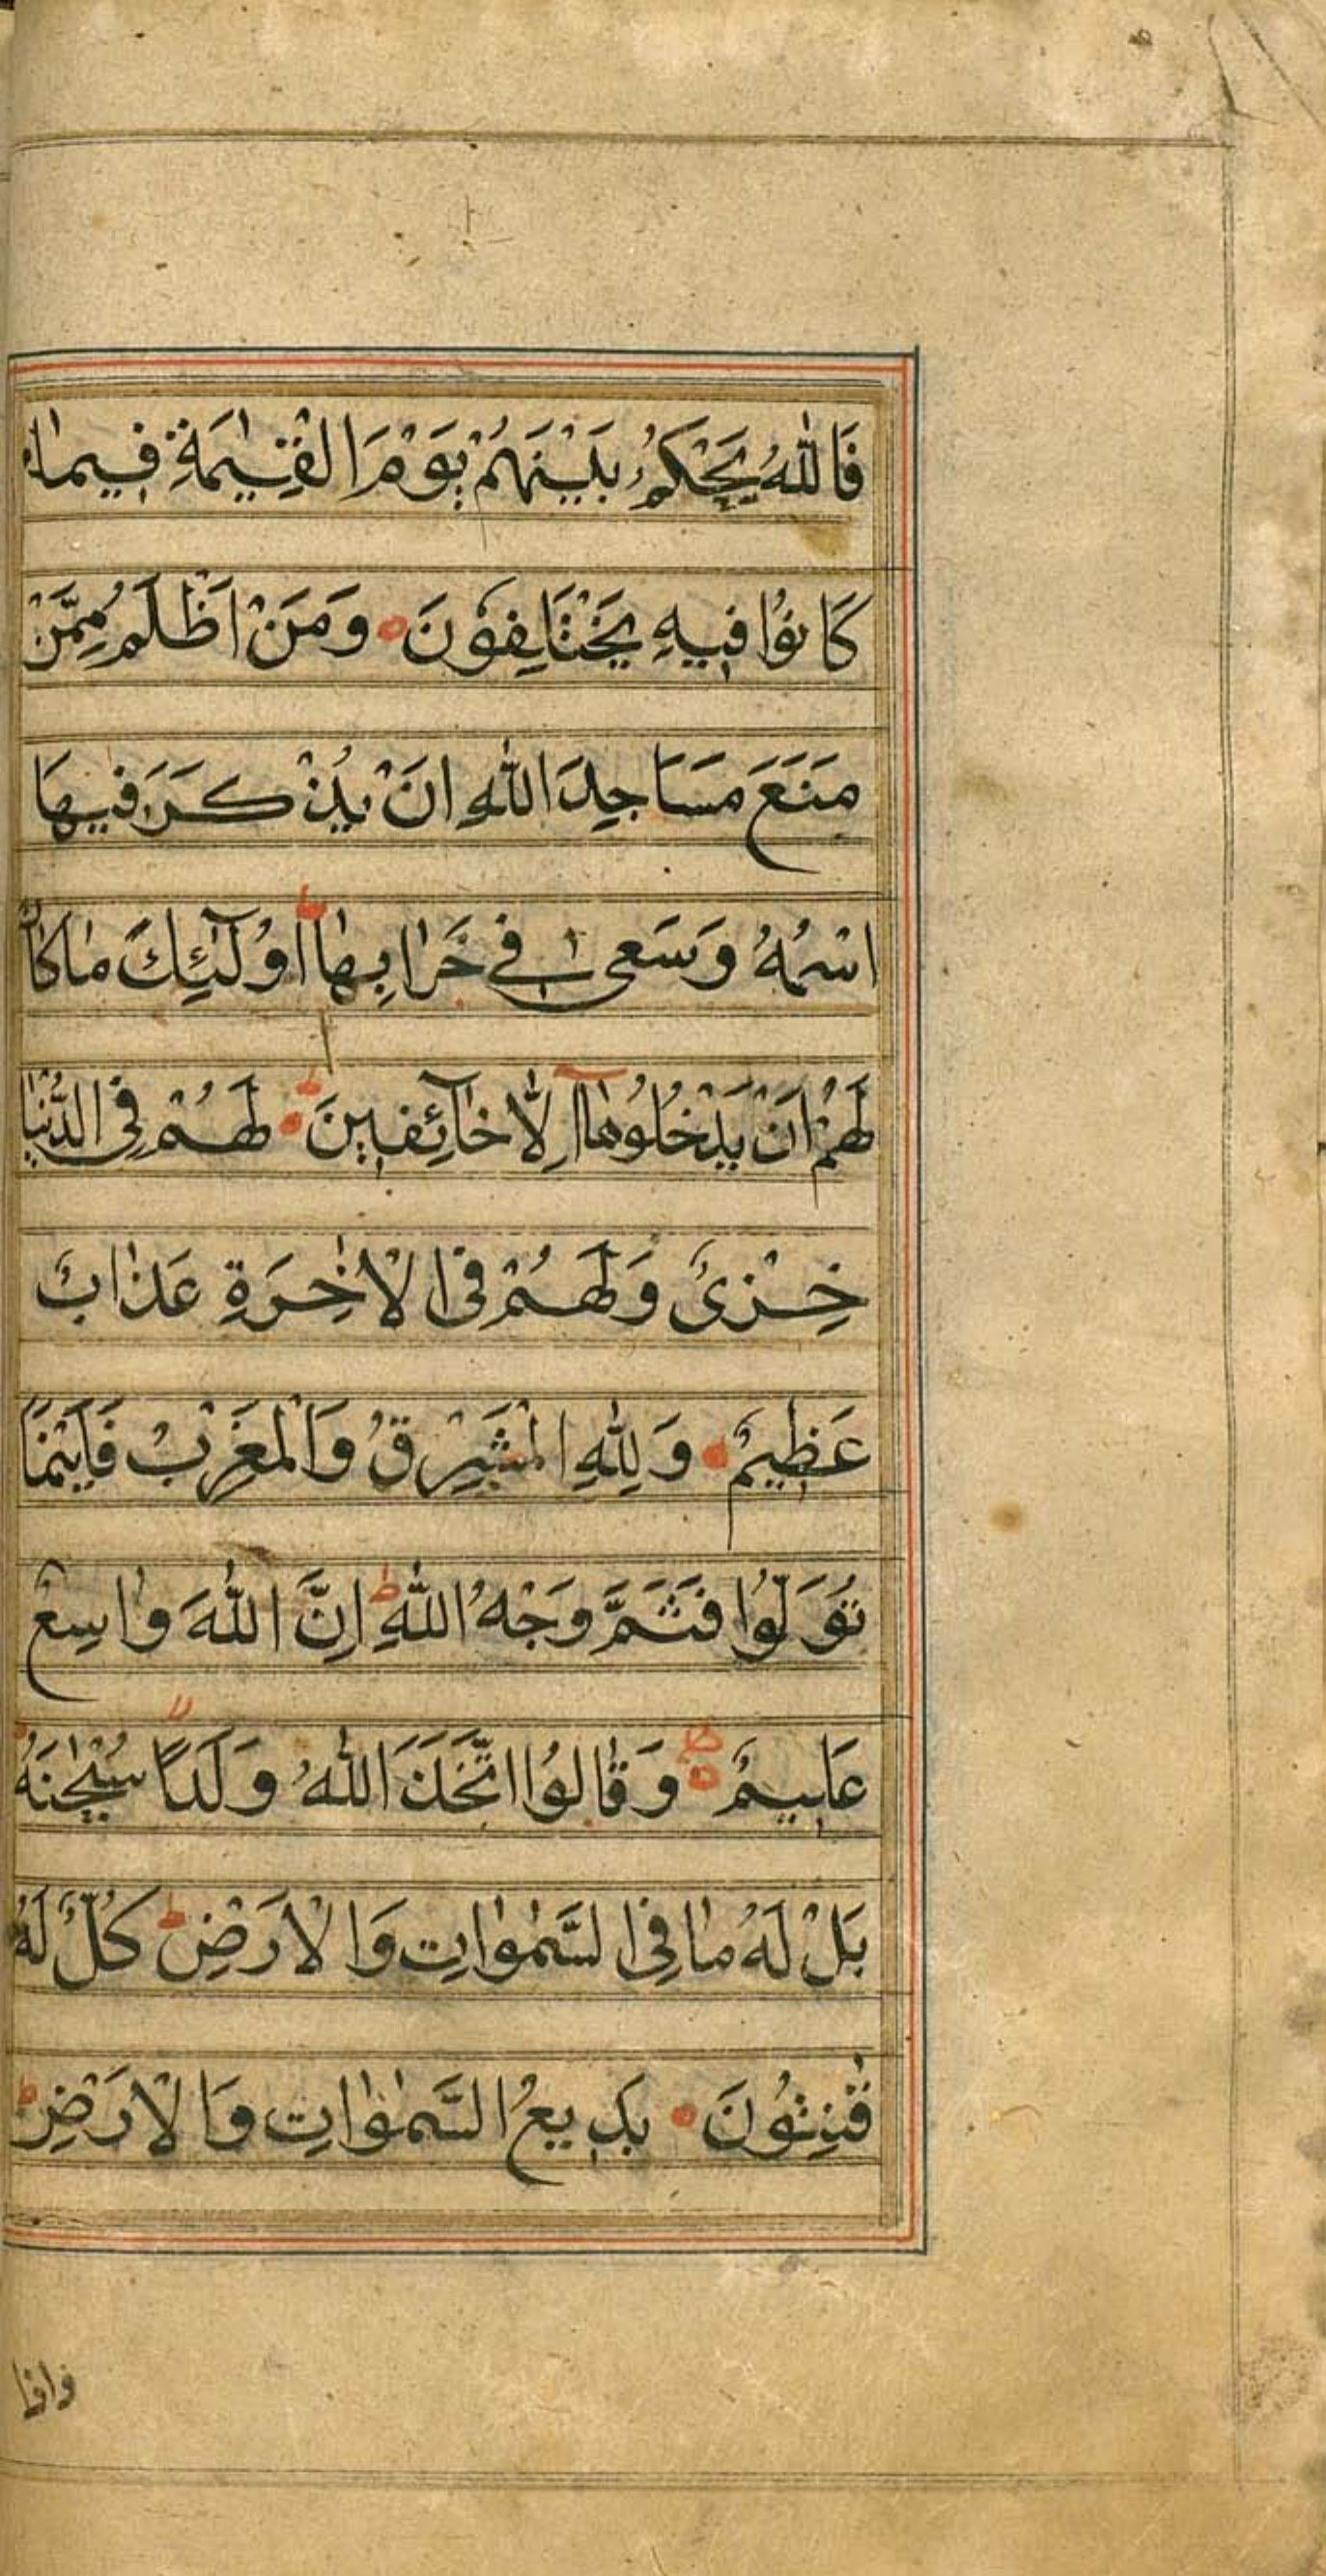 فَاللّٰهُ يَحْكُمُ بَيْنَهُمْ يَوْمَ الْقِيٰمَةِ فِيمٰا
كَانُوُا فِيهِ يَخْتَلِفُوْنَ ۝ وَمَنْ اَظْلَمُ مِمَّنْ
مَنَعَ مَسَاجِدَ اللّٰهِ اَنْ يُذْكَرَ فِيهَا
اسْمُهُ وَسَعىٰ فِے خَرٰابِهٰا ط اُوْلَٓئِكَ مٰا كٰانَ
لَهُمْ اَنْ يَدْخُلُوُهٰٓا اِلّٰا خٰٓائِفِينَ ط ۝ لَهُمْ فِى الدُّنْيٰا
خِزْىٌ وَلَهُمْ فِى الْاٰخِرَةِ عَذٰابٌ
عَظِيمٌ ۝ وَلِلّٰهِ الْمَشْرِقُ وَالْمَغْرِبُ فَاَيْنَمٰا
تُوَلُّوُا فَثَمَّ وَجْهُ اللّٰهِ ط اِنَّ اللّٰهَ وٰاسِعٌ
عَلِيمٌ ۝ وَقٰالوُا اتَّخَذَ اللّٰهُ وَلَدًا سُبْحٰنَهُ
بَلْ لَهُ مٰا فِى السَّمٰوٰاتِ وَالْاَرْضِ ط كُلٌّ لَهُ
قٰنِتُوُنَ ۝ بَدِيعُ السَّمٰوٰاتِ وَالْاَرْضِ ط
واذا